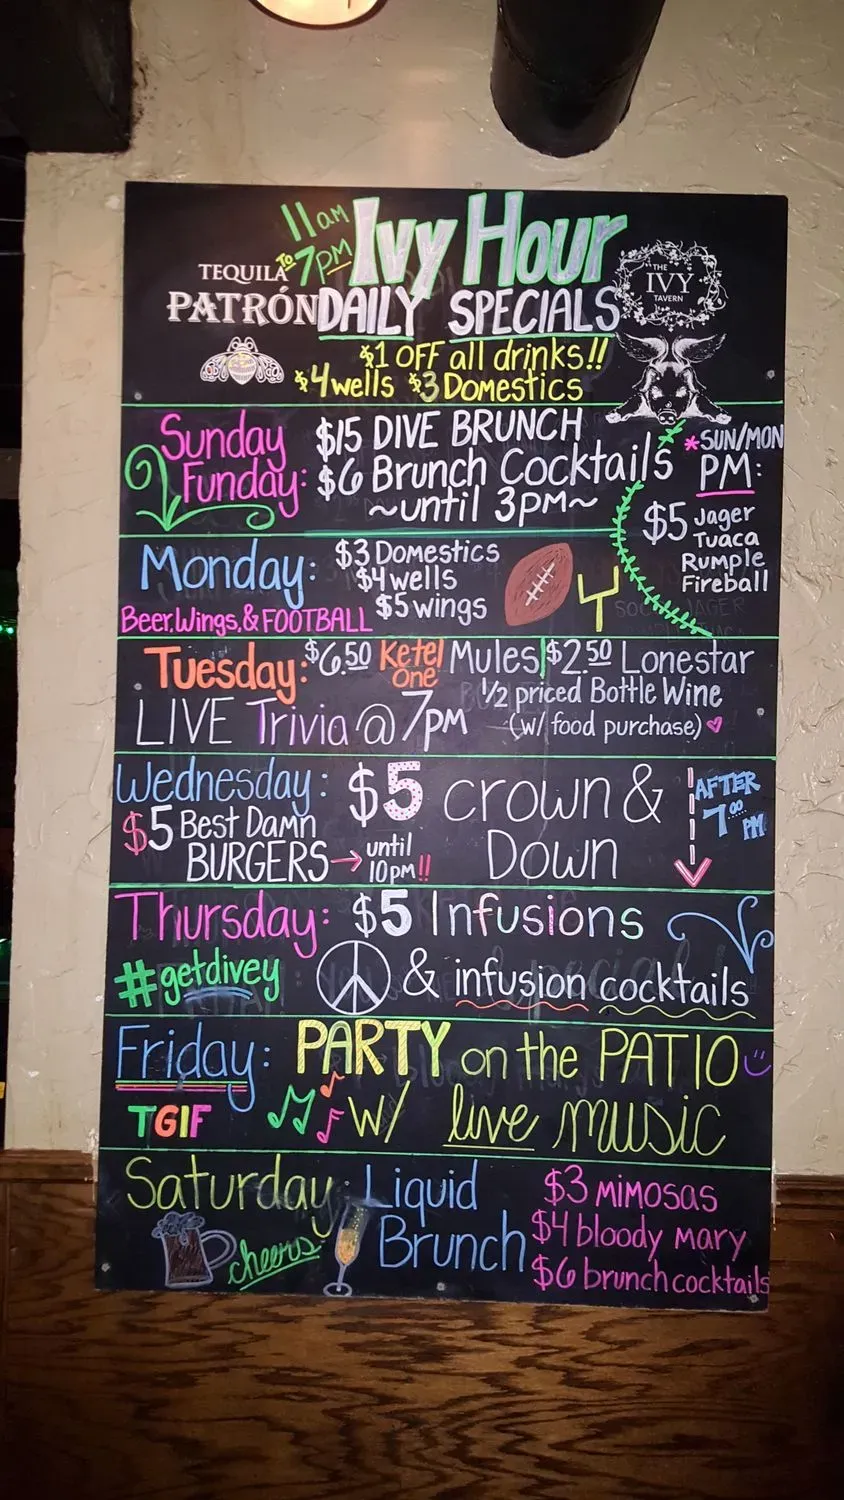 11am
to
7pm
Ivy Hour
TEQUILA
PATRÓN
DAILY SPECIALS
THE
IVY
TAVERN
$1 OFF all drinks!!
$4 wells $3 Domestics
Sunday
Funday:
$15 DIVE BRUNCH
$6 Brunch Cocktails
~until 3PM~
*SUN/MON
PM:
$5 Jager
Tuaca
Rumple
Fireball
Monday:
Beer, Wings, & FOOTBALL
$3 Domestics
$4 wells
$5 wings
Tuesday:
$6.50 Ketel One Mules
$2.50 Lonestar
1/2 priced Bottle Wine
(w/ food purchase)
LIVE Trivia @ 7PM
Wednesday:
$5 Best Damn
BURGERS → until
10pm!!
$5 crown &
Down
AFTER
7:00
PM
Thursday: $5 Infusions
#getdivey
& infusion cocktails
Friday: PARTY on the PATIO
TGIF
w/ live music
Saturday:
cheers
Liquid
Brunch
$3 mimosas
$4 bloody mary
$6 brunch cocktails